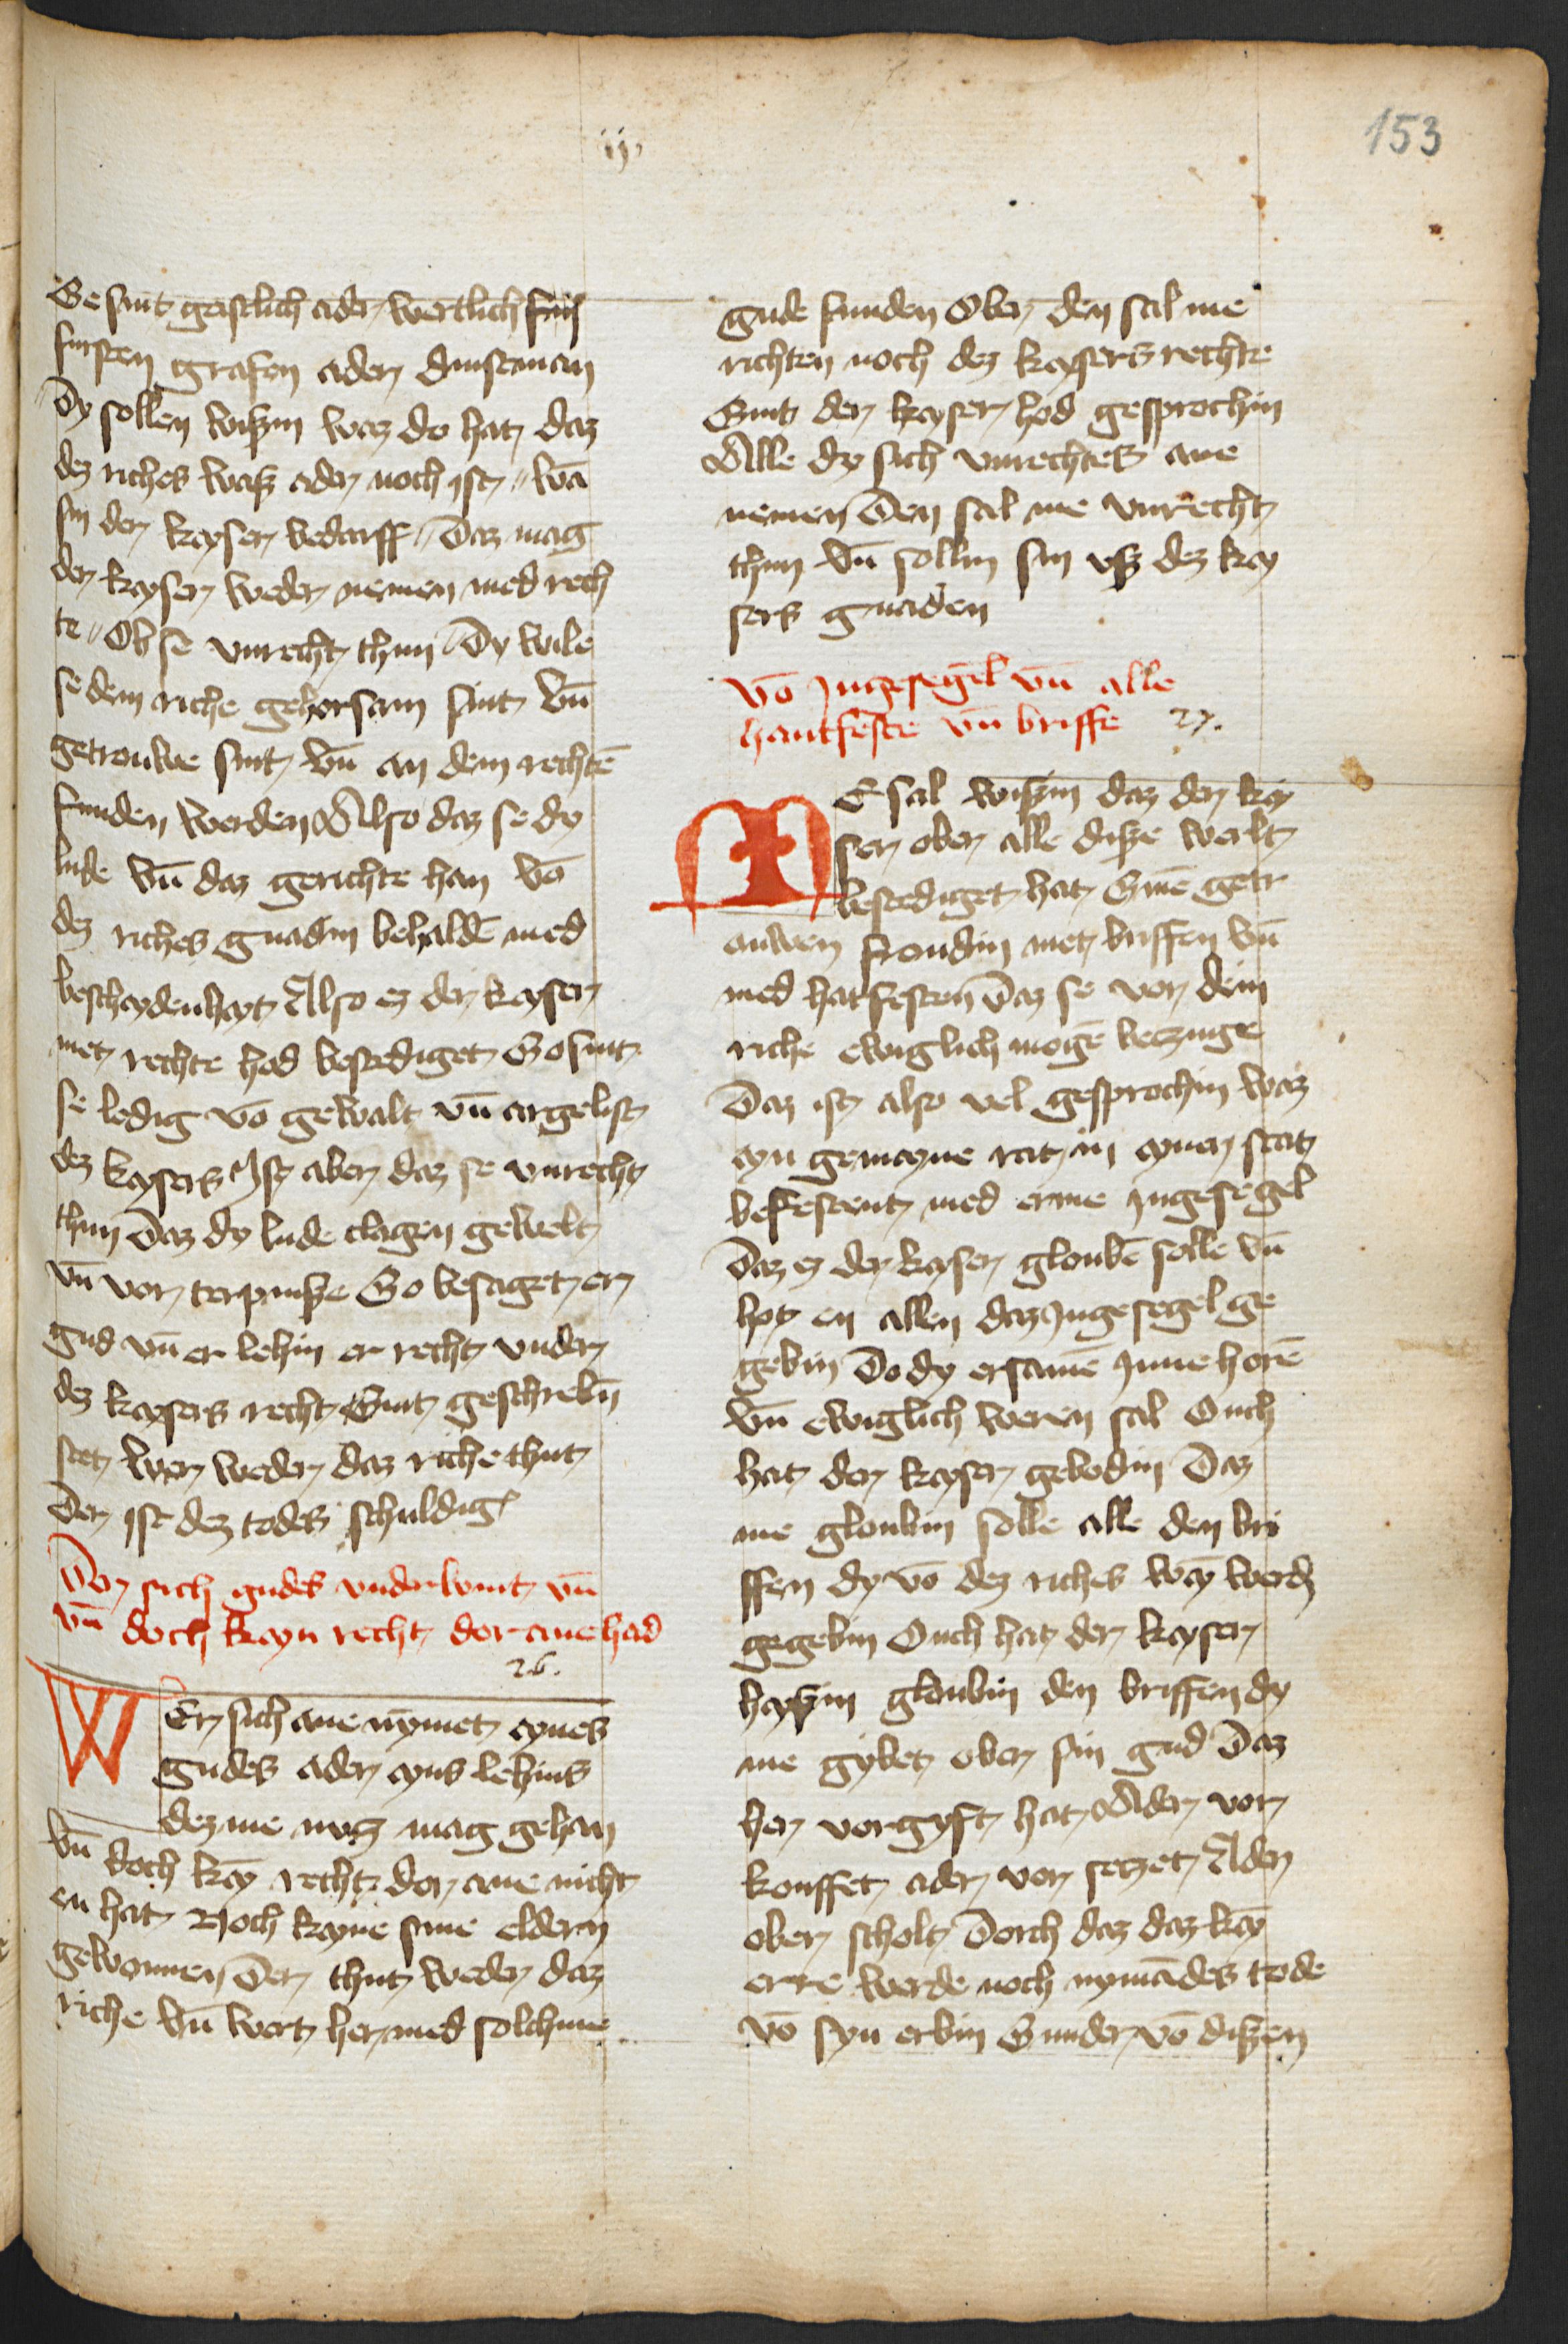 ij
153
Se sint geistlich ader wertlich
fursten grafen ader dinstman
Dy sollen wißin waz do hat daz
dez riches waß ader noch ist wā
sin der keyser bedarff Daz mag
der keyser weder nemen med rech
te Ob se vnrecht thun Dy wile
se dem riche gehorsam sint vn̄
getrouwe sint vn̄ an dem rechtē
funden werden Also daz se dy
lude vn̄ daz gerichte han vō
dez riches gnadin behaldē med
bescheydenheyt Also ez der keyser
met rechte hod bestediget So sint
se ledig vō gewalt vn̄ argelist
dez keysers Ist aber daz se vnrecht
thun Daz dy lude clagen gewelt
vn̄ vor terpnuße So besaget er
gud vn̄ er lehin er recht vnder
dez keysers recht Sint geschrebin
stet Wer weder daz riche thut
Der ist dez todes schuldig
Der sich gudes vnderwint vn̄
vn̄ doch keyn recht dor ane had
26.
WEr sich ane nymet eynes
gudes ader eyns lehins
dez me nutz mag gehan
vn̄ doch keȳ recht dor ane nicht
en hat Noch keyne sine eldern
gewonnen Der thut weder daz
riche vn̄ wert her med solchme
gude funden Ober den sal me
richten noch dez keysers rechte
Sint der keyser hod gesprochin
Alle dy sich vnrechtes ane
nemen Den sal me vnrecht
thun vn̄ sollin sin vß dez key
sers gnaden
Vō Ingesegel vn̄ alle
hantfeste vn̄ briffe 27.
ME sal wißin daz der key
ser ober alle diße werlt
bestediget hat Sinē getr
auwen frondin met briffen vn̄
med hatfesten Daz se vor dem
riche ewiglich mogē bezuge
Daz ist also vel gesprochin waz
eyn gemeyne rat in eyner stat
befestent med erme Ingesegel
Daz ez der keyser gloubē solle vn̄
hot en allen daz Ingesegel ge
gebin Do dy ersamē Inne horē
vn̄ ewiglich weren sal Ouch
hat der keyser gebodin Daz
me gloubin solle alle den bri
ffen dy vō dez riches wey werdē
gegebin Ouch hat der keyser
heyßin gloubin den briffen dy
me gybet ober sin gud Daz
her vorgyft hat Ader vor
kouffet ader vor setzet Ader
ober scholt Dorch daz daz keȳ
erre werde noch nymādes tode
vō syn erbin Sunder vō dißen